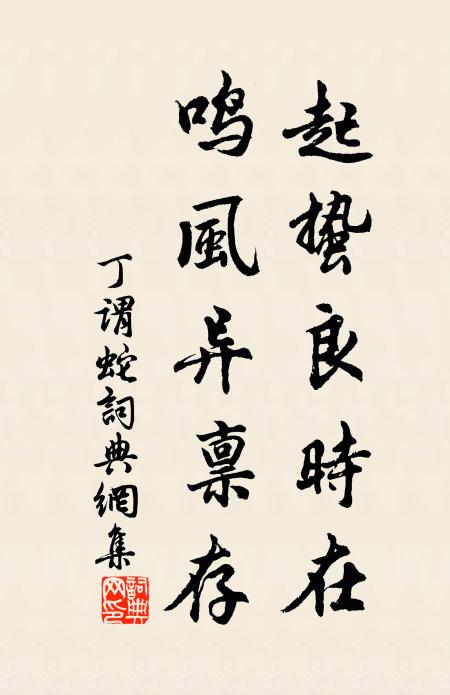 起蛰良時在
鸣風异禀存
丁谓蛇詞典網集
詞典网印